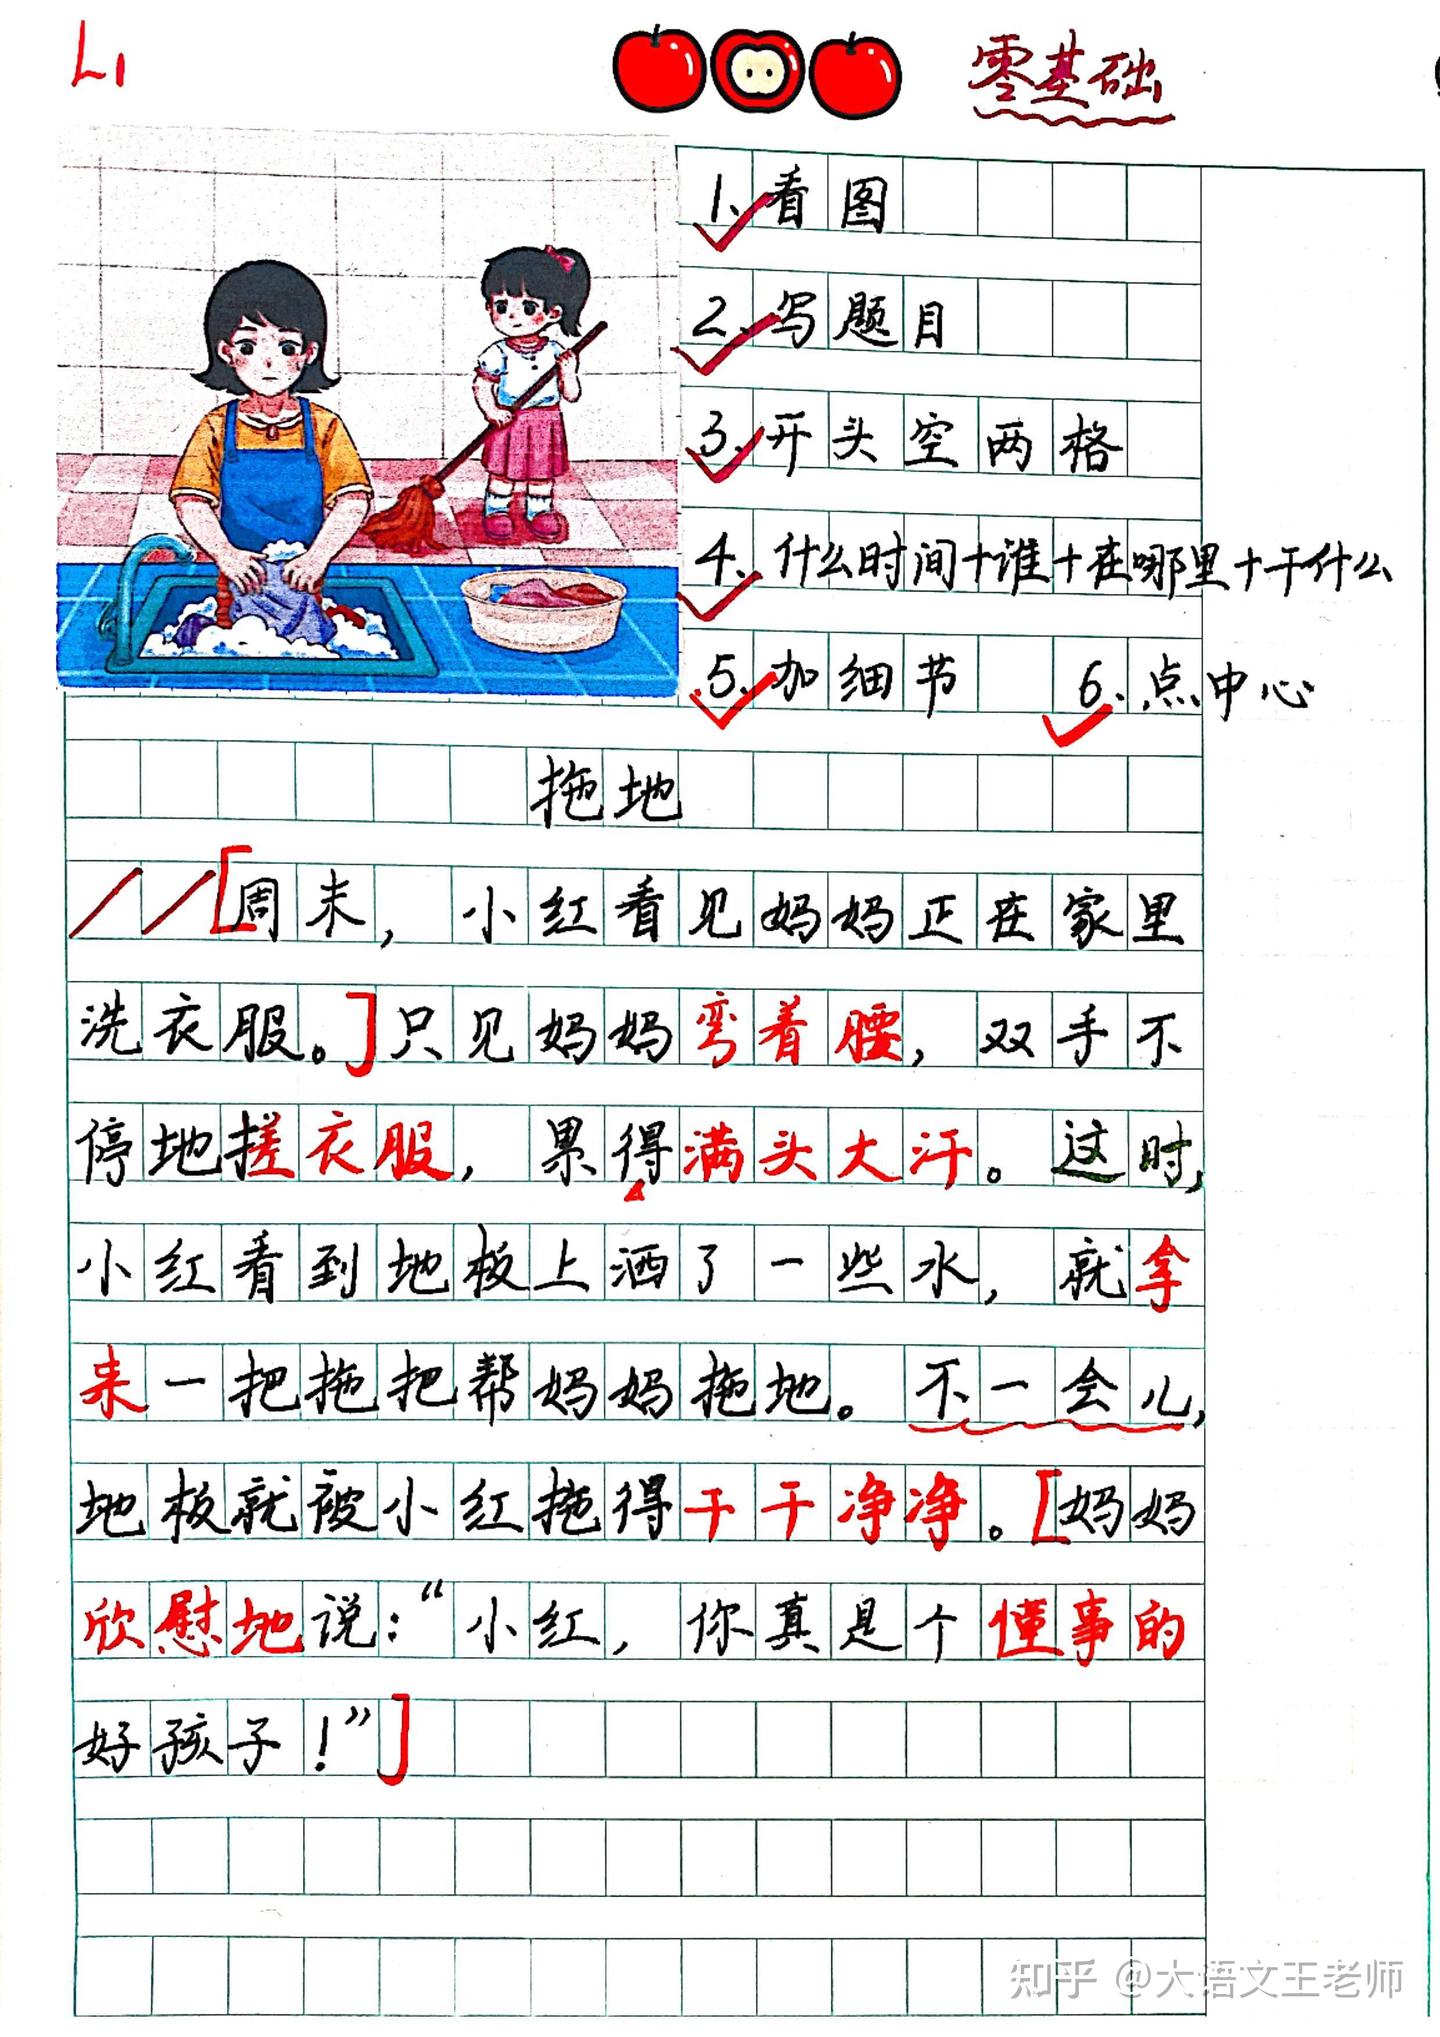 L1
零基础
1、看图
2、写题目
3、开头空两格
4、什么时间+谁+在哪里+干什么
5、加细节 6、点中心
拖地
周末，小红看见妈妈正在家里
洗衣服。]只见妈妈弯着腰，双手不
停地搓衣服，累得满头大汗。这时，
小红看到地板上洒了一些水，就拿
来一把拖把帮妈妈拖地。不一会儿，
地板就被小红拖得干干净净。[妈妈
欣慰地说：“小红，你真是个懂事的
好孩子！”]
知乎 @大语文王老师